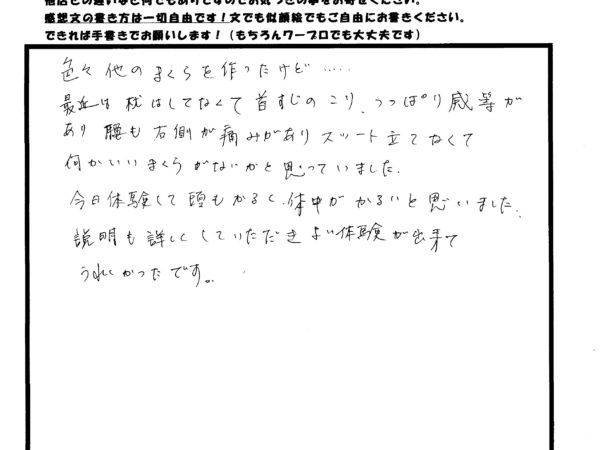 感想文の書き方は一切自由です！文でも似顔絵でもご自由にお書きください。
できれば手書きでお願いします！（もちろんワープロでも大丈夫です）
色々他のまくらを作ったけど……
最近は枕はしてなくて首すじのこり、つっぱり感等が
あり腰も右側が痛みがありスット立てなくて
何かいいまくらがないかと思っていました.
今日体験して頭もかるく、体中がかるいと思いました.
説明も詳しくしていただきよい体験が出来て
うれしかったです。